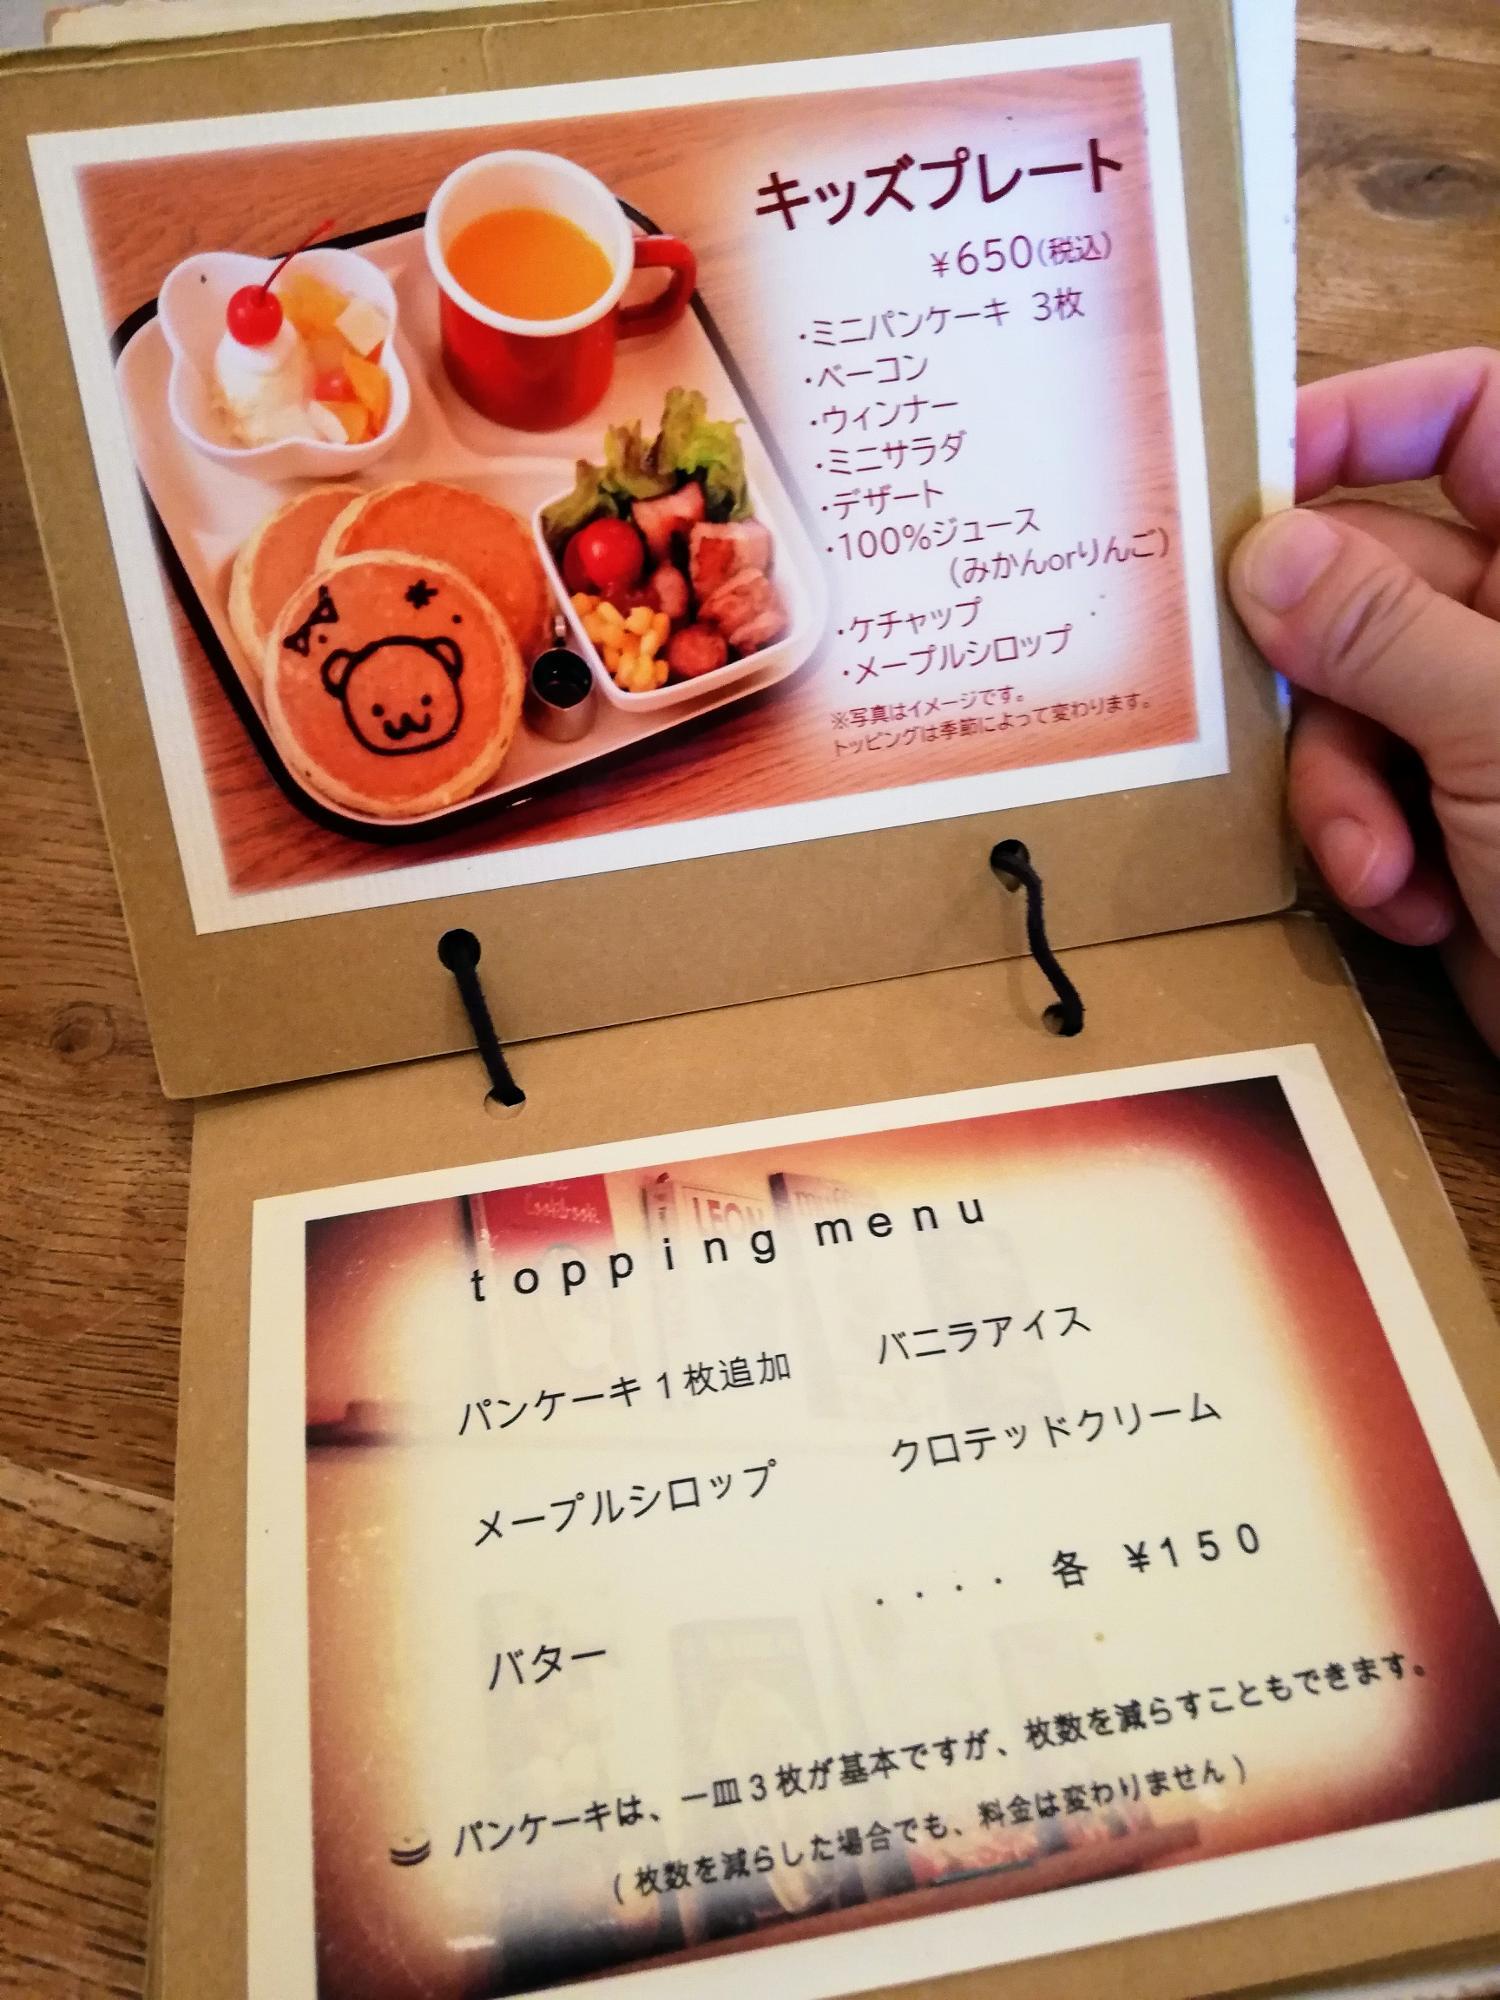 キッズプレート
¥650(税込)
・ミニパンケーキ 3枚
・ベーコン
・ウィンナー
・ミニサラダ
・デザート
・100%ジュース
(みかんorりんご)
・ケチャップ
・メープルシロップ
※写真はイメージです。
トッピングは季節によって変わります。
Cookbook
LEON
topping menu
パンケーキ1枚追加
バニラアイス
メープルシロップ
クロテッドクリーム
バター
・・・・ 各 ¥150
パンケーキは、一皿3枚が基本ですが、枚数を減らすこともできます。
(枚数を減らした場合でも、料金は変わりません)